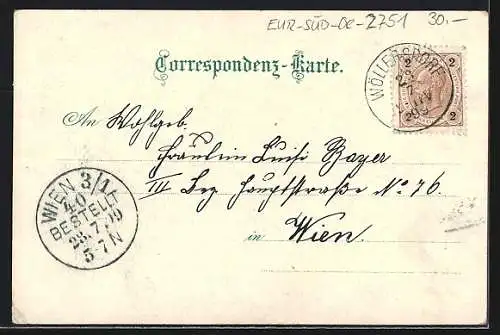 EUR-SÜD-OE-2751 30.—
Correspondenz-Karte.
WÖLLERSDORF
23
7
2 2
2 2
An Wohlgeb.
Fräulein Luisi Bayer
III Bez Hauptstraße No 76.
in Wien.
WIEN 3/1
40
BESTELLT
23.7.99
5-7 N